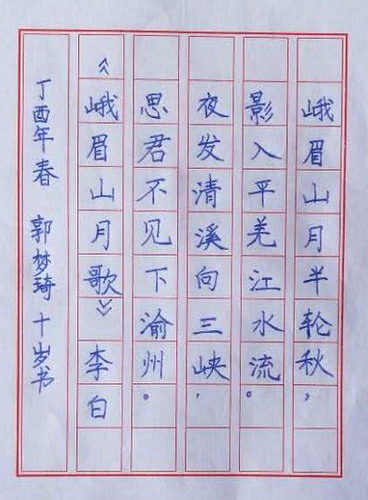 峨眉山月半轮秋，
影入平羌江水流。
夜发清溪向三峡，
思君不见下渝州。
《峨眉山月歌》李白
丁酉年春 郭梦琦 十岁书